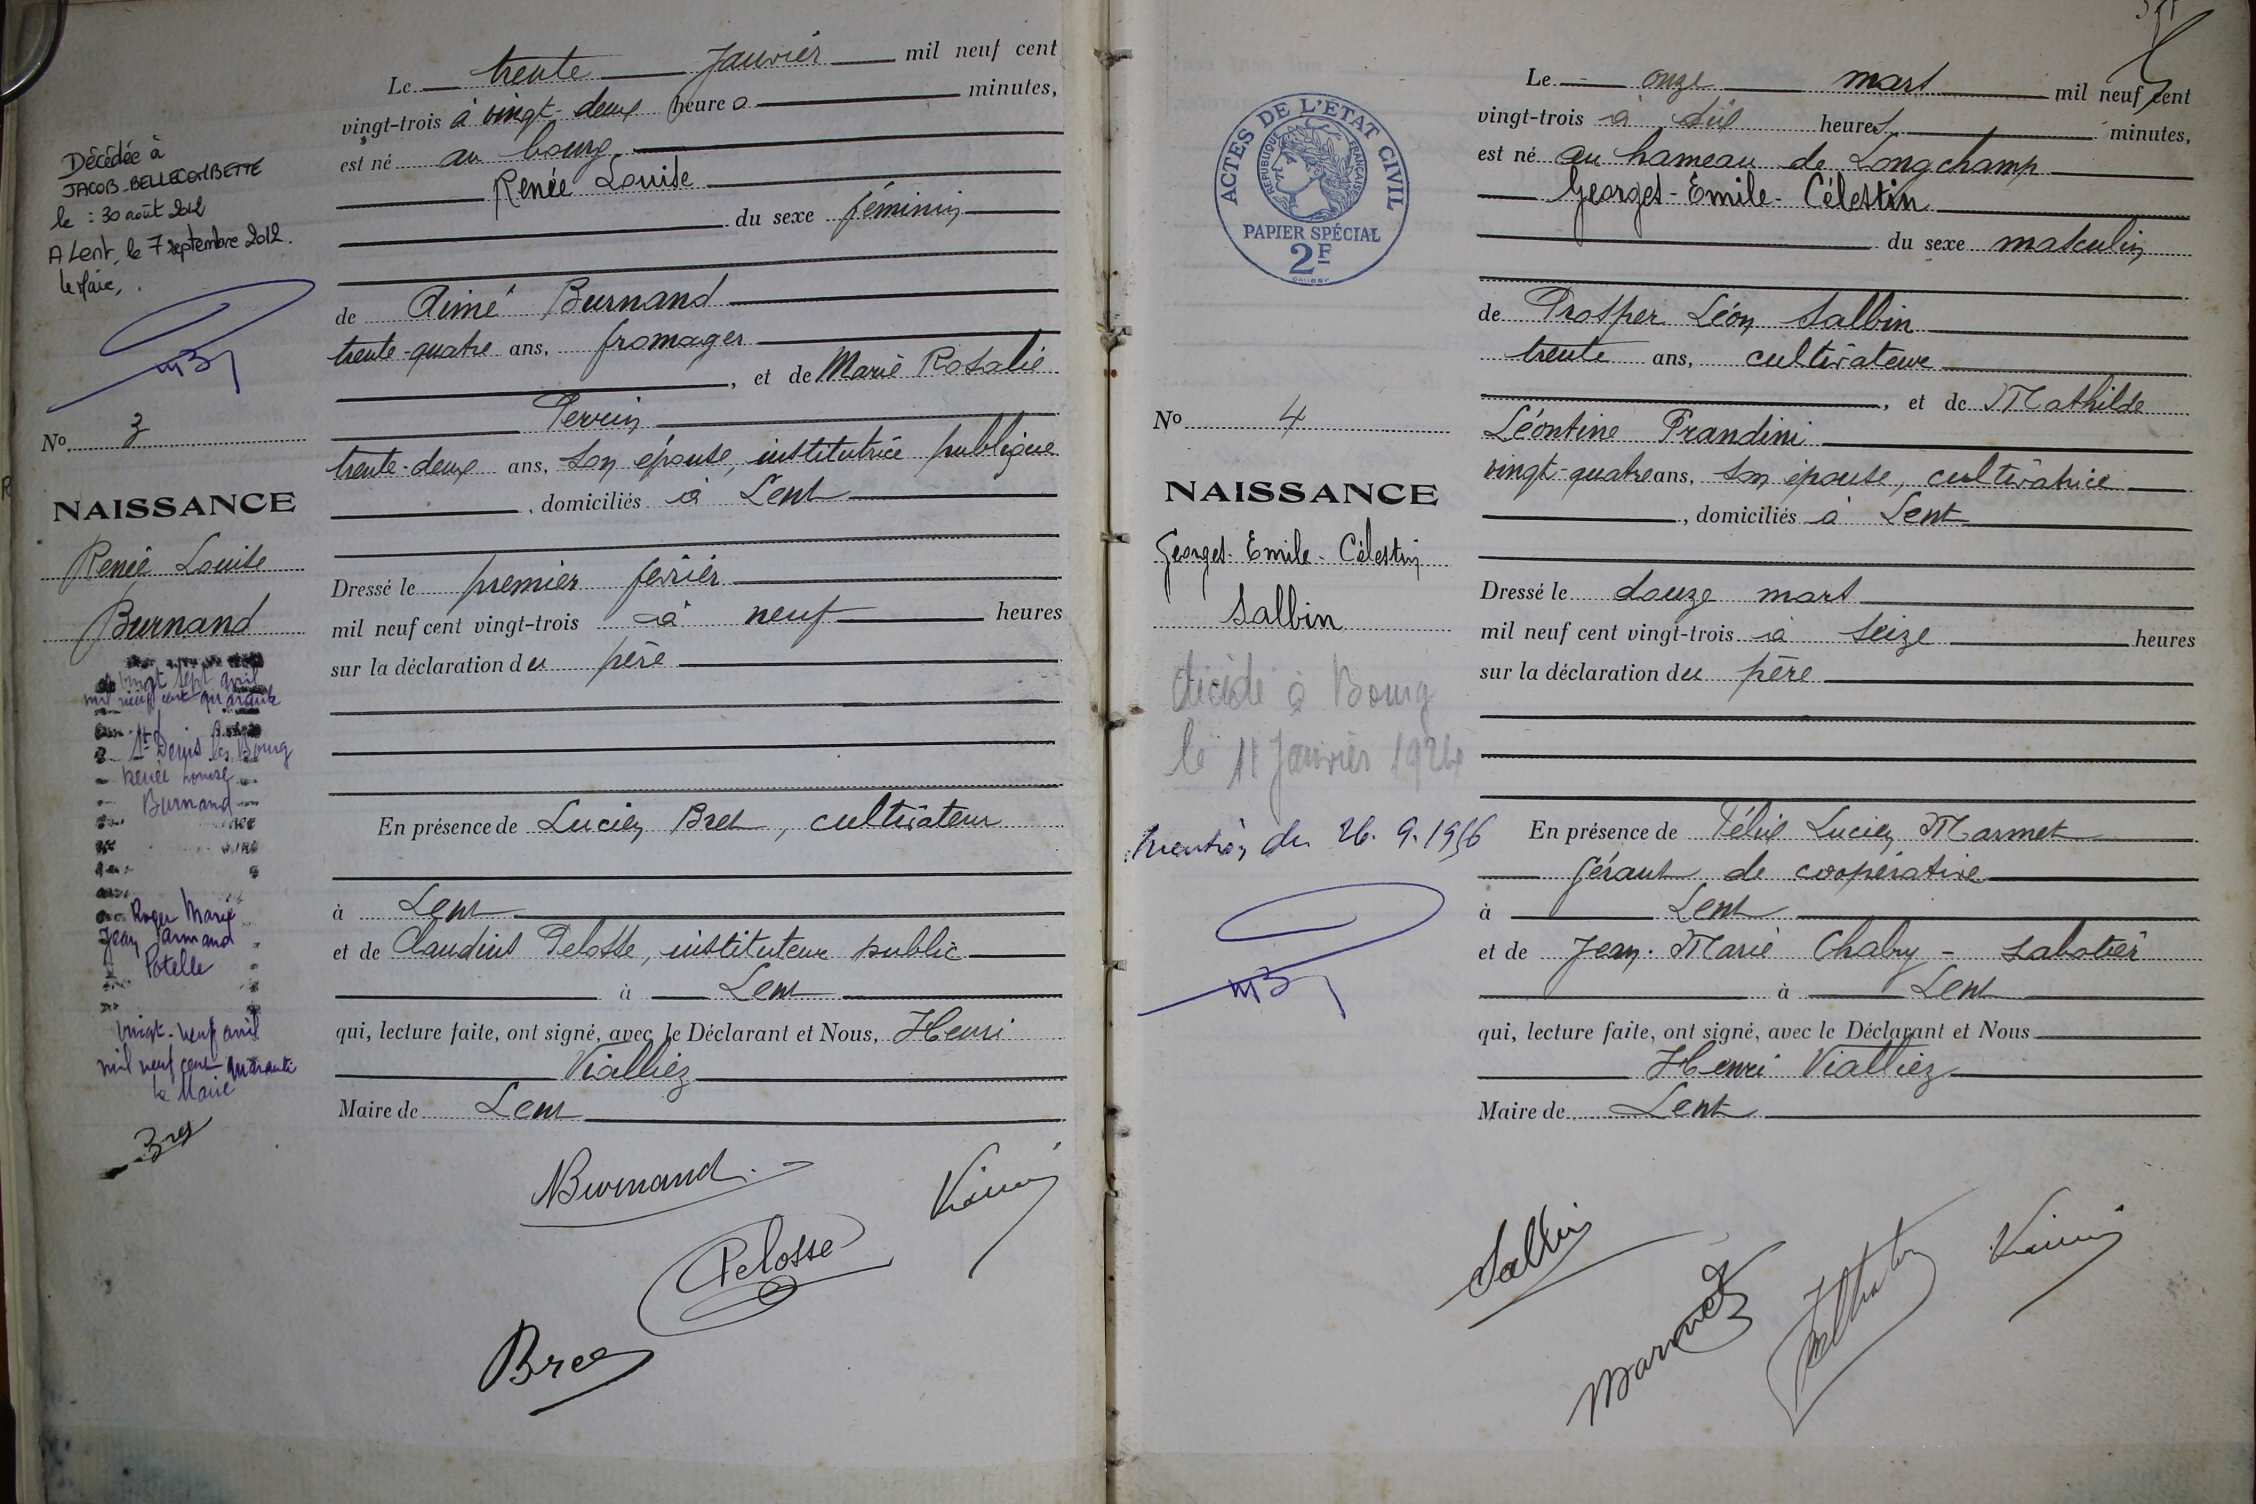 Décédée à
JACOB-BELLECOMBETTE
le : 30 août 2012
A Lent, le 7 septembre 2012.
le Maire,
No 3
NAISSANCE
Renée Louise
Burnand
vingt sept avril
mil neuf cent quarante
St Denis les Bourg
Renée Louise
Burnand
Roger Marie
Jean Armand
Potelle
vingt-neuf avril
mil neuf cent quarante
le Maire
Bret
Le trente Janvier mil neuf cent
vingt-trois à vingt-deux heures minutes,
est né au bourg
Renée Louise
du sexe féminin
de Aimé Burnand
trente-quatre ans, fromager
, et de Marie Rosalie
Perrin
trente-deux ans, son épouse, institutrice publique
, domiciliés à Lent
Dressé le premier février
mil neuf cent vingt-trois à neuf heures
sur la déclaration du père
En présence de Lucien Bret, cultivateur
à Lent
et de Claudius Pelosse, instituteur public
à Lent
qui, lecture faite, ont signé, avec le Déclarant et Nous, Henri
Vialliez
Maire de Lent
Burnand
Pelosse
Bret
ACTES DE L'ETAT CIVIL
REPUBLIQUE FRANÇAISE
PAPIER SPÉCIAL
2F
No 4
NAISSANCE
Georges-Emile-Célestin
Salbin
décédé à Bourg
le 11 Janvier 1924
mention du 26.9.1956
Le onze mars mil neuf cent
vingt-trois à six heures minutes,
est né au hameau de Longchamp
Georges-Emile-Célestin
du sexe masculin
de Prosper Léon Salbin
trente ans, cultivateur
, et de Mathilde
Léontine Prandini
vingt-quatre ans, son épouse, cultivatrice
, domiciliés à Lent
Dressé le douze mars
mil neuf cent vingt-trois à seize heures
sur la déclaration du père
En présence de Félix Lucien Marmet
Gérant de coopérative
à Lent
et de Jean-Marie Chabry - sabotier
à Lent
qui, lecture faite, ont signé, avec le Déclarant et Nous
Henri Vialliez
Maire de Lent
Salbin
Marmet